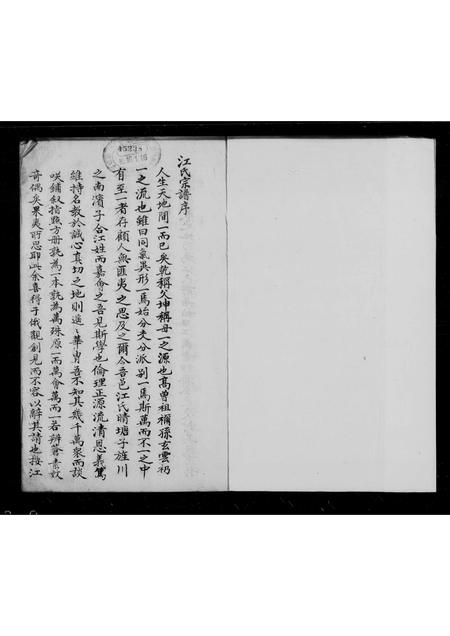 江氏宗譜序
人生天地間一而已矣乾稱父坤稱母一之源也高曾祖禰孫玄雲礽
一之流也雖曰同氣異形一焉始分支分派別一焉斯萬而不一之中
有至一者存顧人無匪夷之思及之爾今吾邑江氏晴塘子旌川
之南濱子合江姓而嘉會之吾見斯學也倫理正源流清恩義篤
維持名教於誠心真切之地則遥遥華胄吾不知其幾千萬眾而談
咲鋪叙指點方冊孰為一本孰為萬殊原一而萬會萬而一若辨蒼素數
奇偶矣果夷所思耶此余喜得于俄觀創見而不容以辭其請也按江